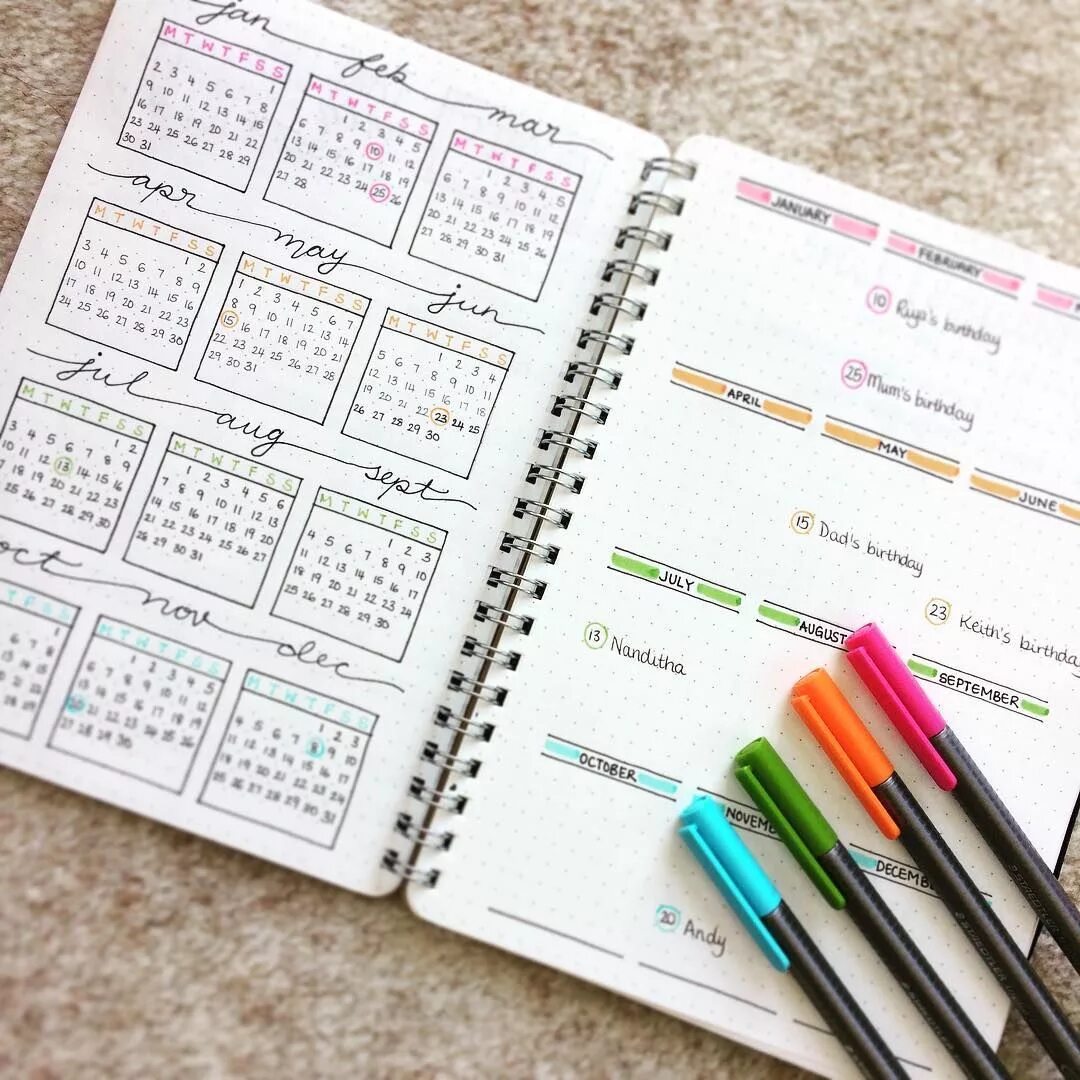 jan
M T W T F S S
1
2 3 4 5 6 7 8
9 10 11 12 13 14 15
16 17 18 19 20 21 22
23 24 25 26 27 28 29
30 31
feb
M T W T F S S
1 2 3 4 5
6 7 8 9 10 11 12
13 14 15 16 17 18 19
20 21 22 23 24 25 26
27 28
mar
M T W T F S S
1 2 3 4 5
6 7 8 9 10 11 12
13 14 15 16 17 18 19
20 21 22 23 24 25 26
27 28 29 30 31
apr
M T W T F S S
1 2
3 4 5 6 7 8 9
10 11 12 13 14 15 16
17 18 19 20 21 22 23
24 25 26 27 28 29 30
may
M T W T F S S
1 2 3 4 5 6 7
8 9 10 11 12 13 14
15 16 17 18 19 20 21
22 23 24 25 26 27 28
29 30 31
jun
M T W T F S S
1 2 3 4
5 6 7 8 9 10 11
12 13 14 15 16 17 18
19 20 21 22 23 24 25
26 27 28 29 30
jul
M T W T F S S
1 2
3 4 5 6 7 8 9
11 12 13 14 15 16
18 19 20 21 22 23
25 26 27 28 29 30
aug
M T W T F S S
1 2 3 4 5 6
7 8 9 10 11 12 13
14 15 16 17 18 19 20
21 22 23 24 25 26 27
28 29 30 31
sept
M T W T F S S
1 2 3
4 5 6 7 8 9 10
11 12 13 14 15 16 17
18 19 20 21 22 23 24
25 26 27 28 29 30
oct
T F S S
1
6 7 8
nov
M T W T F S S
1 2 3 4 5
6 7 8 9 10 11 12
13 14 15 16 17 18 19
20 21 22 23 24 25 26
27 28 29 30
dec
M T W T F S S
1 2 3
4 5 6 7 8 9 10
11 12 13 14 15 16 17
18 19 20 21 22 23 24
25 26 27 28 29 30 31
JANUARY
FEBRUARY
10 Riya's birthday
25 Mum's birthday
APRIL
MAY
JUNE
15 Dad's birthday
23 Keith's birthda
JULY
AUGUST
SEPTEMBER
13 Nanditha
OCTOBER
NOVEMB
DECEMB
20 Andy
STAEDTLER
STAEDTLER